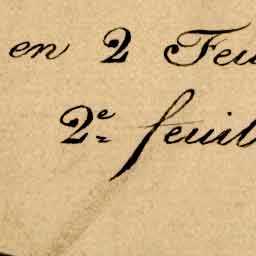 en 2 Feu
2e feuil